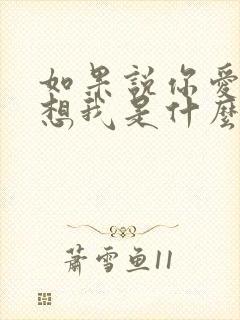 如果說你愛
想我是什麼
蕭雪鱼11